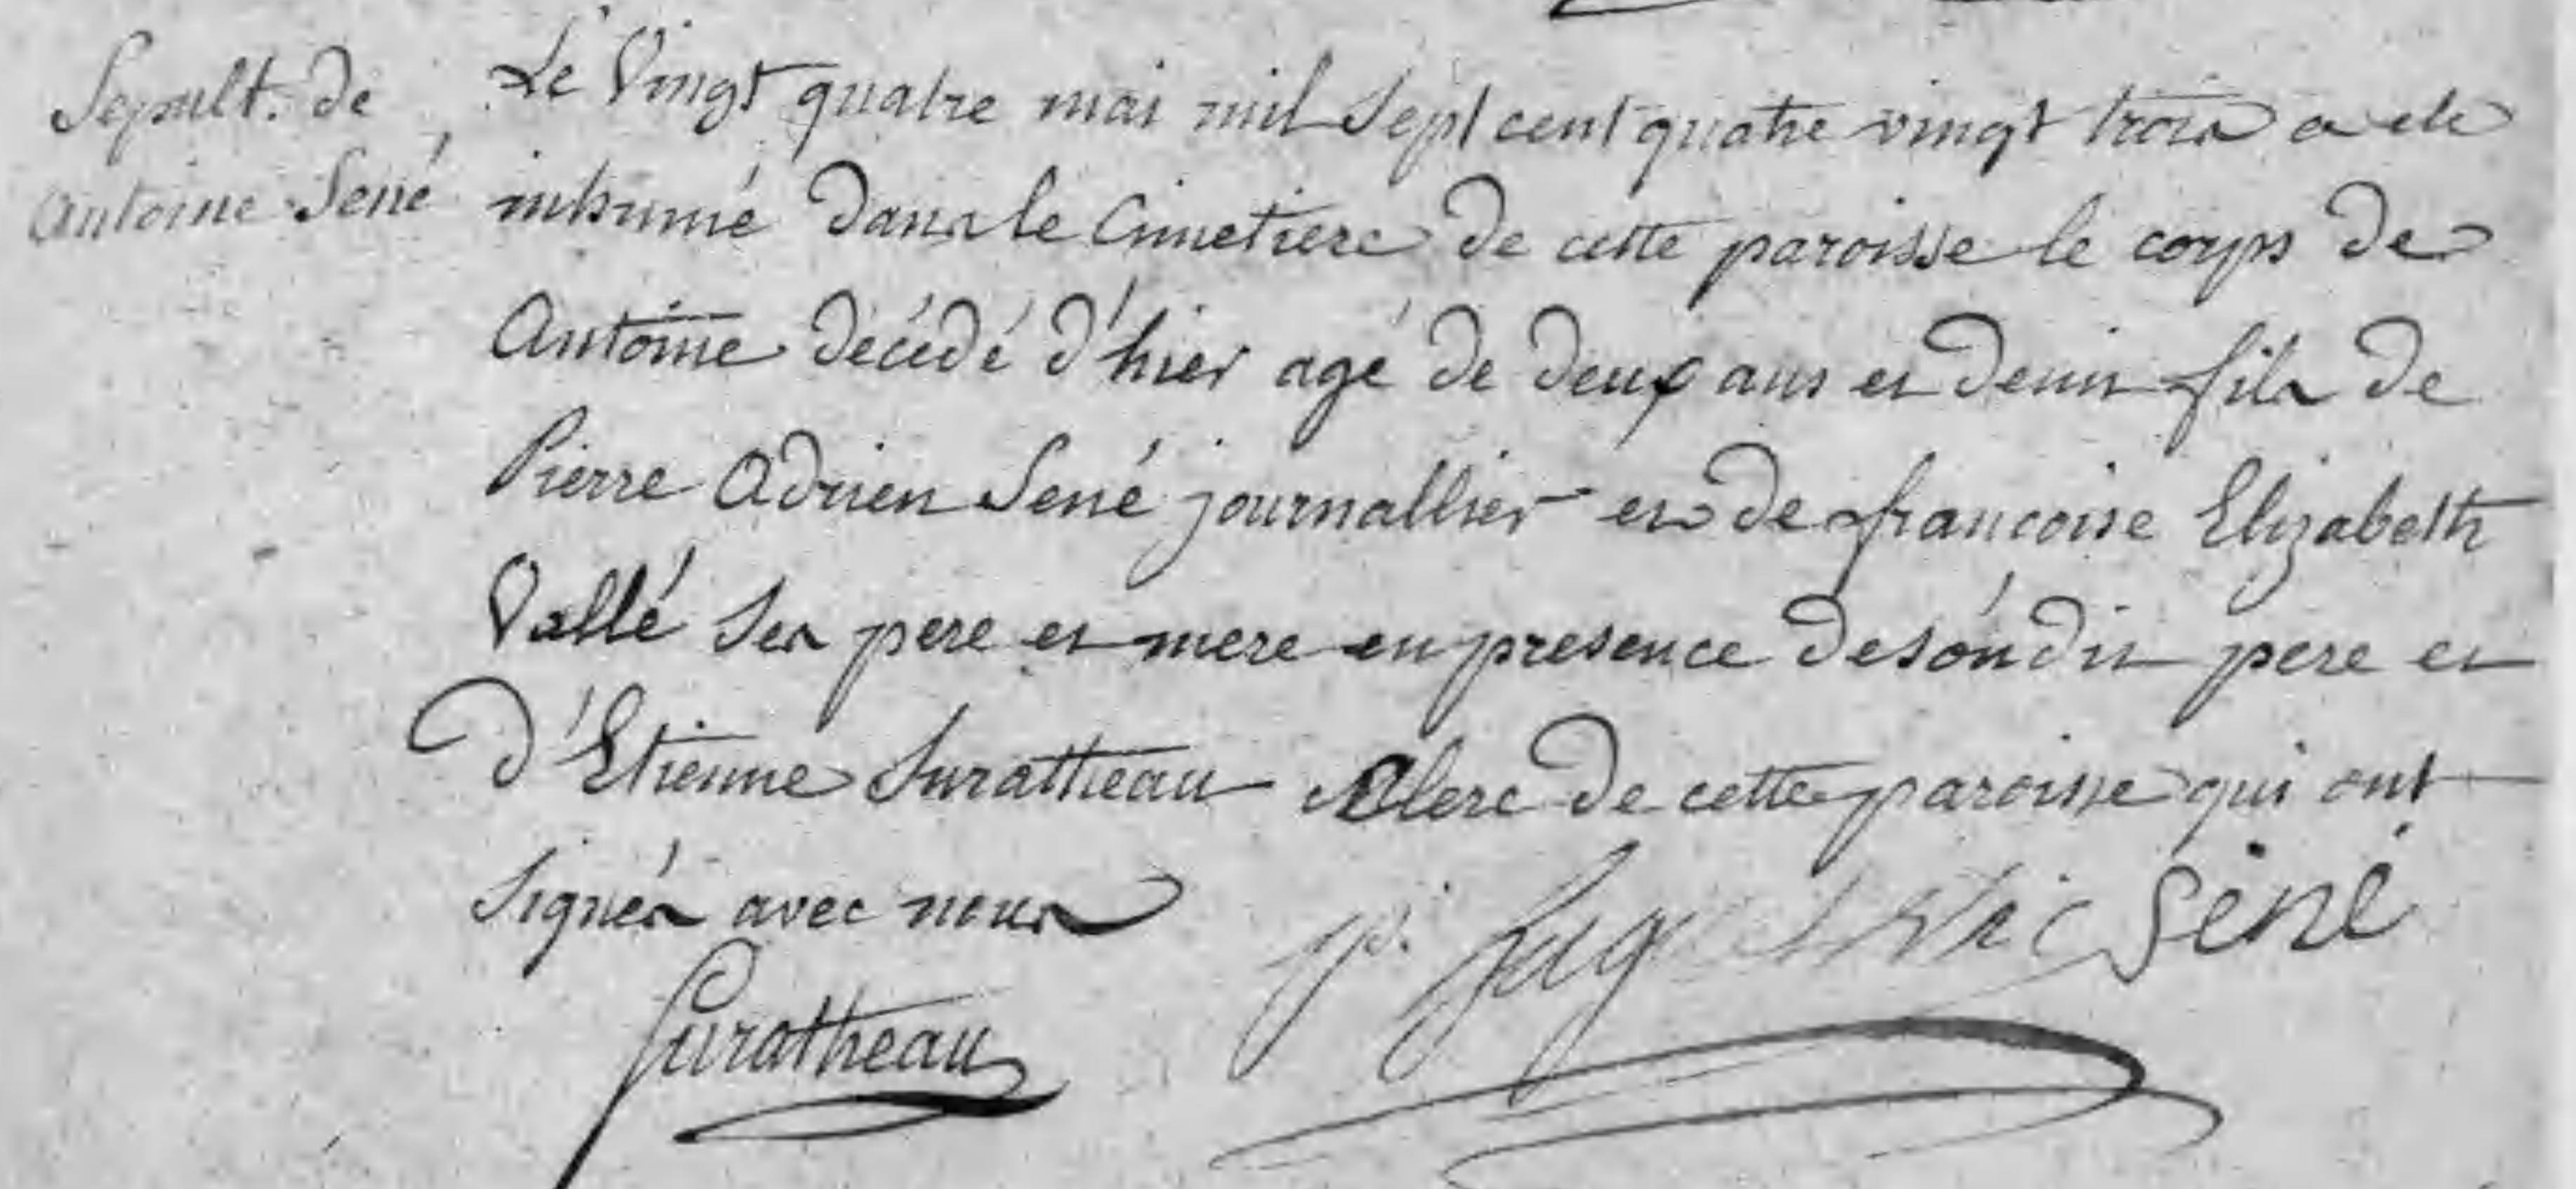 Sepult. de
Antoine Sené
Le Vingt quatre mai mil Sept cent quatre vingt trois a ete
inhumé dans le Cimetiere de cette paroisse le corps de
Antoine décédé d'hier agé de deux ans et demis fils de
Pierre Adrien Sené journallier et de francoise Elizabeth
Vallé Ses pere et mere en presence de son dit pere et
d'Etienne Suratheau Clerc de cette paroisse qui ont
Signés avec nous
Sené
Suratheau